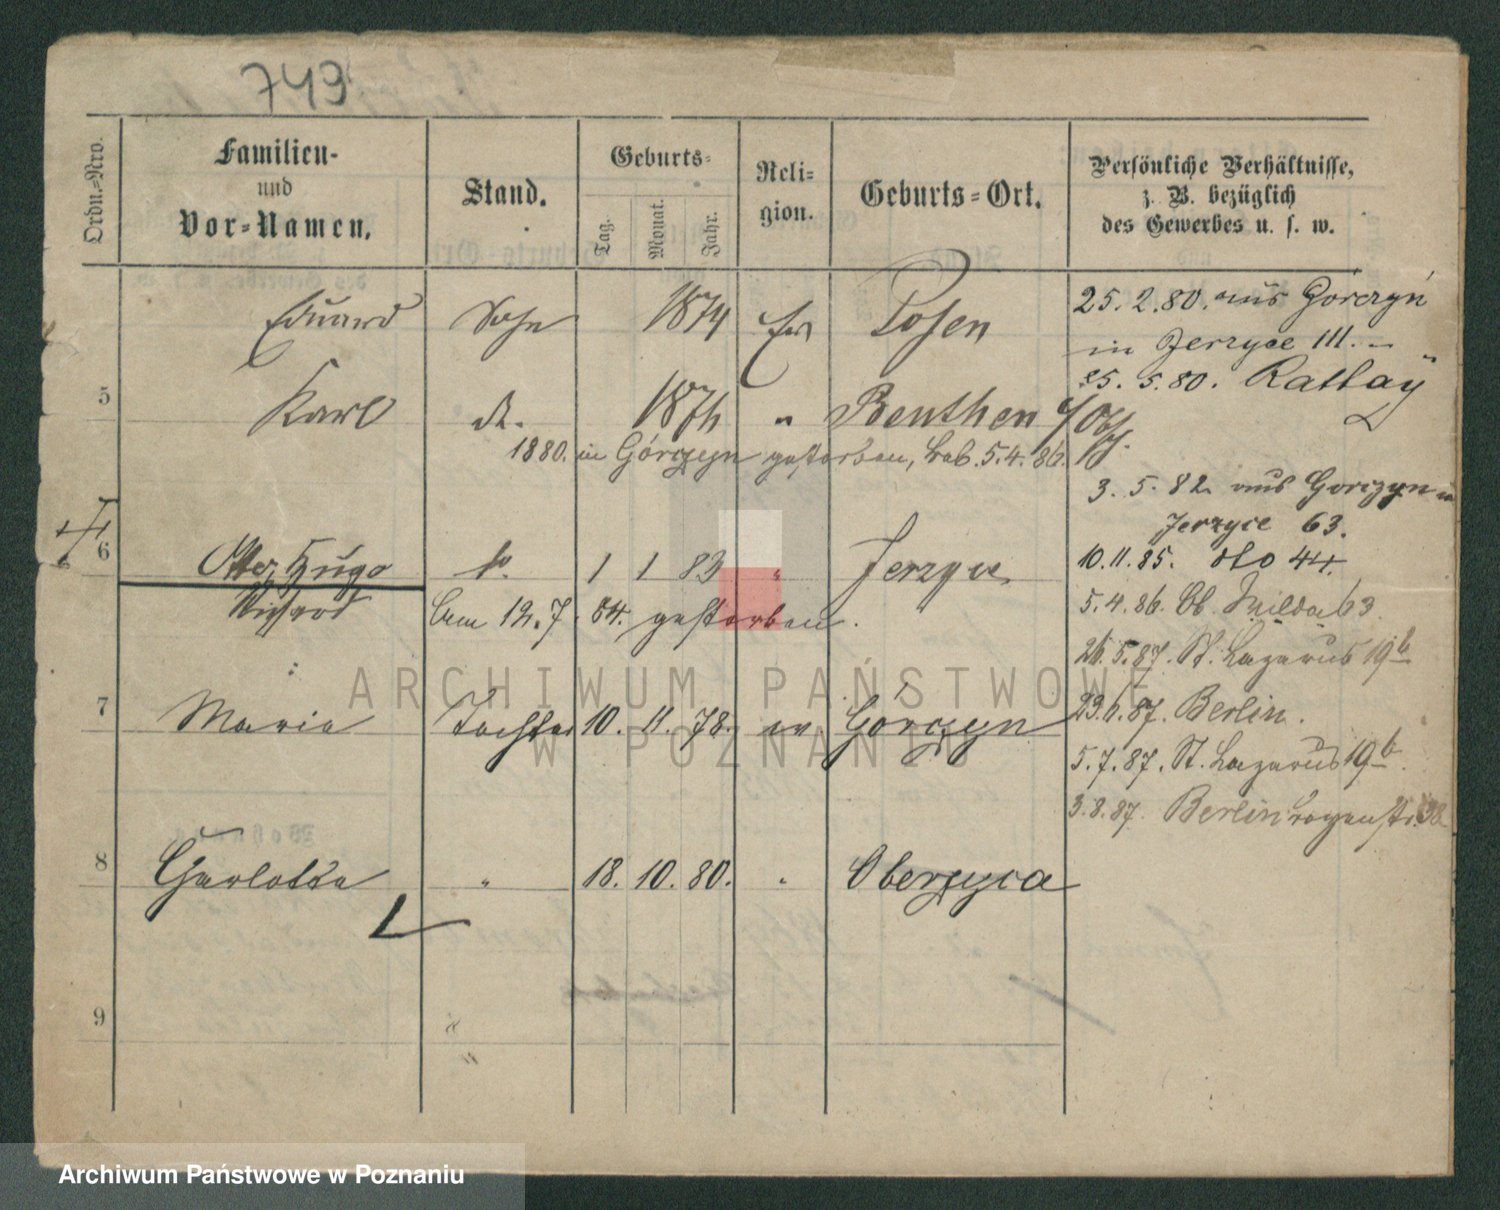 749
Ordn.=Nro.
Familien-
und
Vor=Namen.
Stand.
Geburts=
Tag.
Monat.
Jahr.
Reli=
gion.
Geburts=Ort.
Persönliche Verhältnisse,
z. B. bezüglich
des Gewerbes u. s. w.
Eduard Sohn 1874 Ev Posen
25. 2. 80. aus Gorczyn
in Jerzyce III. -
25. 5. 80. Rattay
5 Karl do. 1876 " Beuthen
1880. in Górczyn gestorben, 5. 4. 86.
3. 5. 82 aus Gorczyn in
Jerzyce 63.
6 Otto Hugo 1 1 83 " Jerzyce
Richard Am 12. 7. 84. gestorben.
10. 11. 85. dto 44.
5. 4. 86. Ob. Wilda 63
26. 5. 87. St. Lazarus 19b
7 Maria Tochter 10. 11. 78. ev Górczyn
23. 6. 87. Berlin.
5. 7. 87. St. Lazarus 19b
3. 8. 87. Berlin
8 Charlotte " 18. 10. 80. " Oberzyca
9
ARCHIWUM PAŃSTWOWE
W POZNANIU
Archiwum Państwowe w Poznaniu